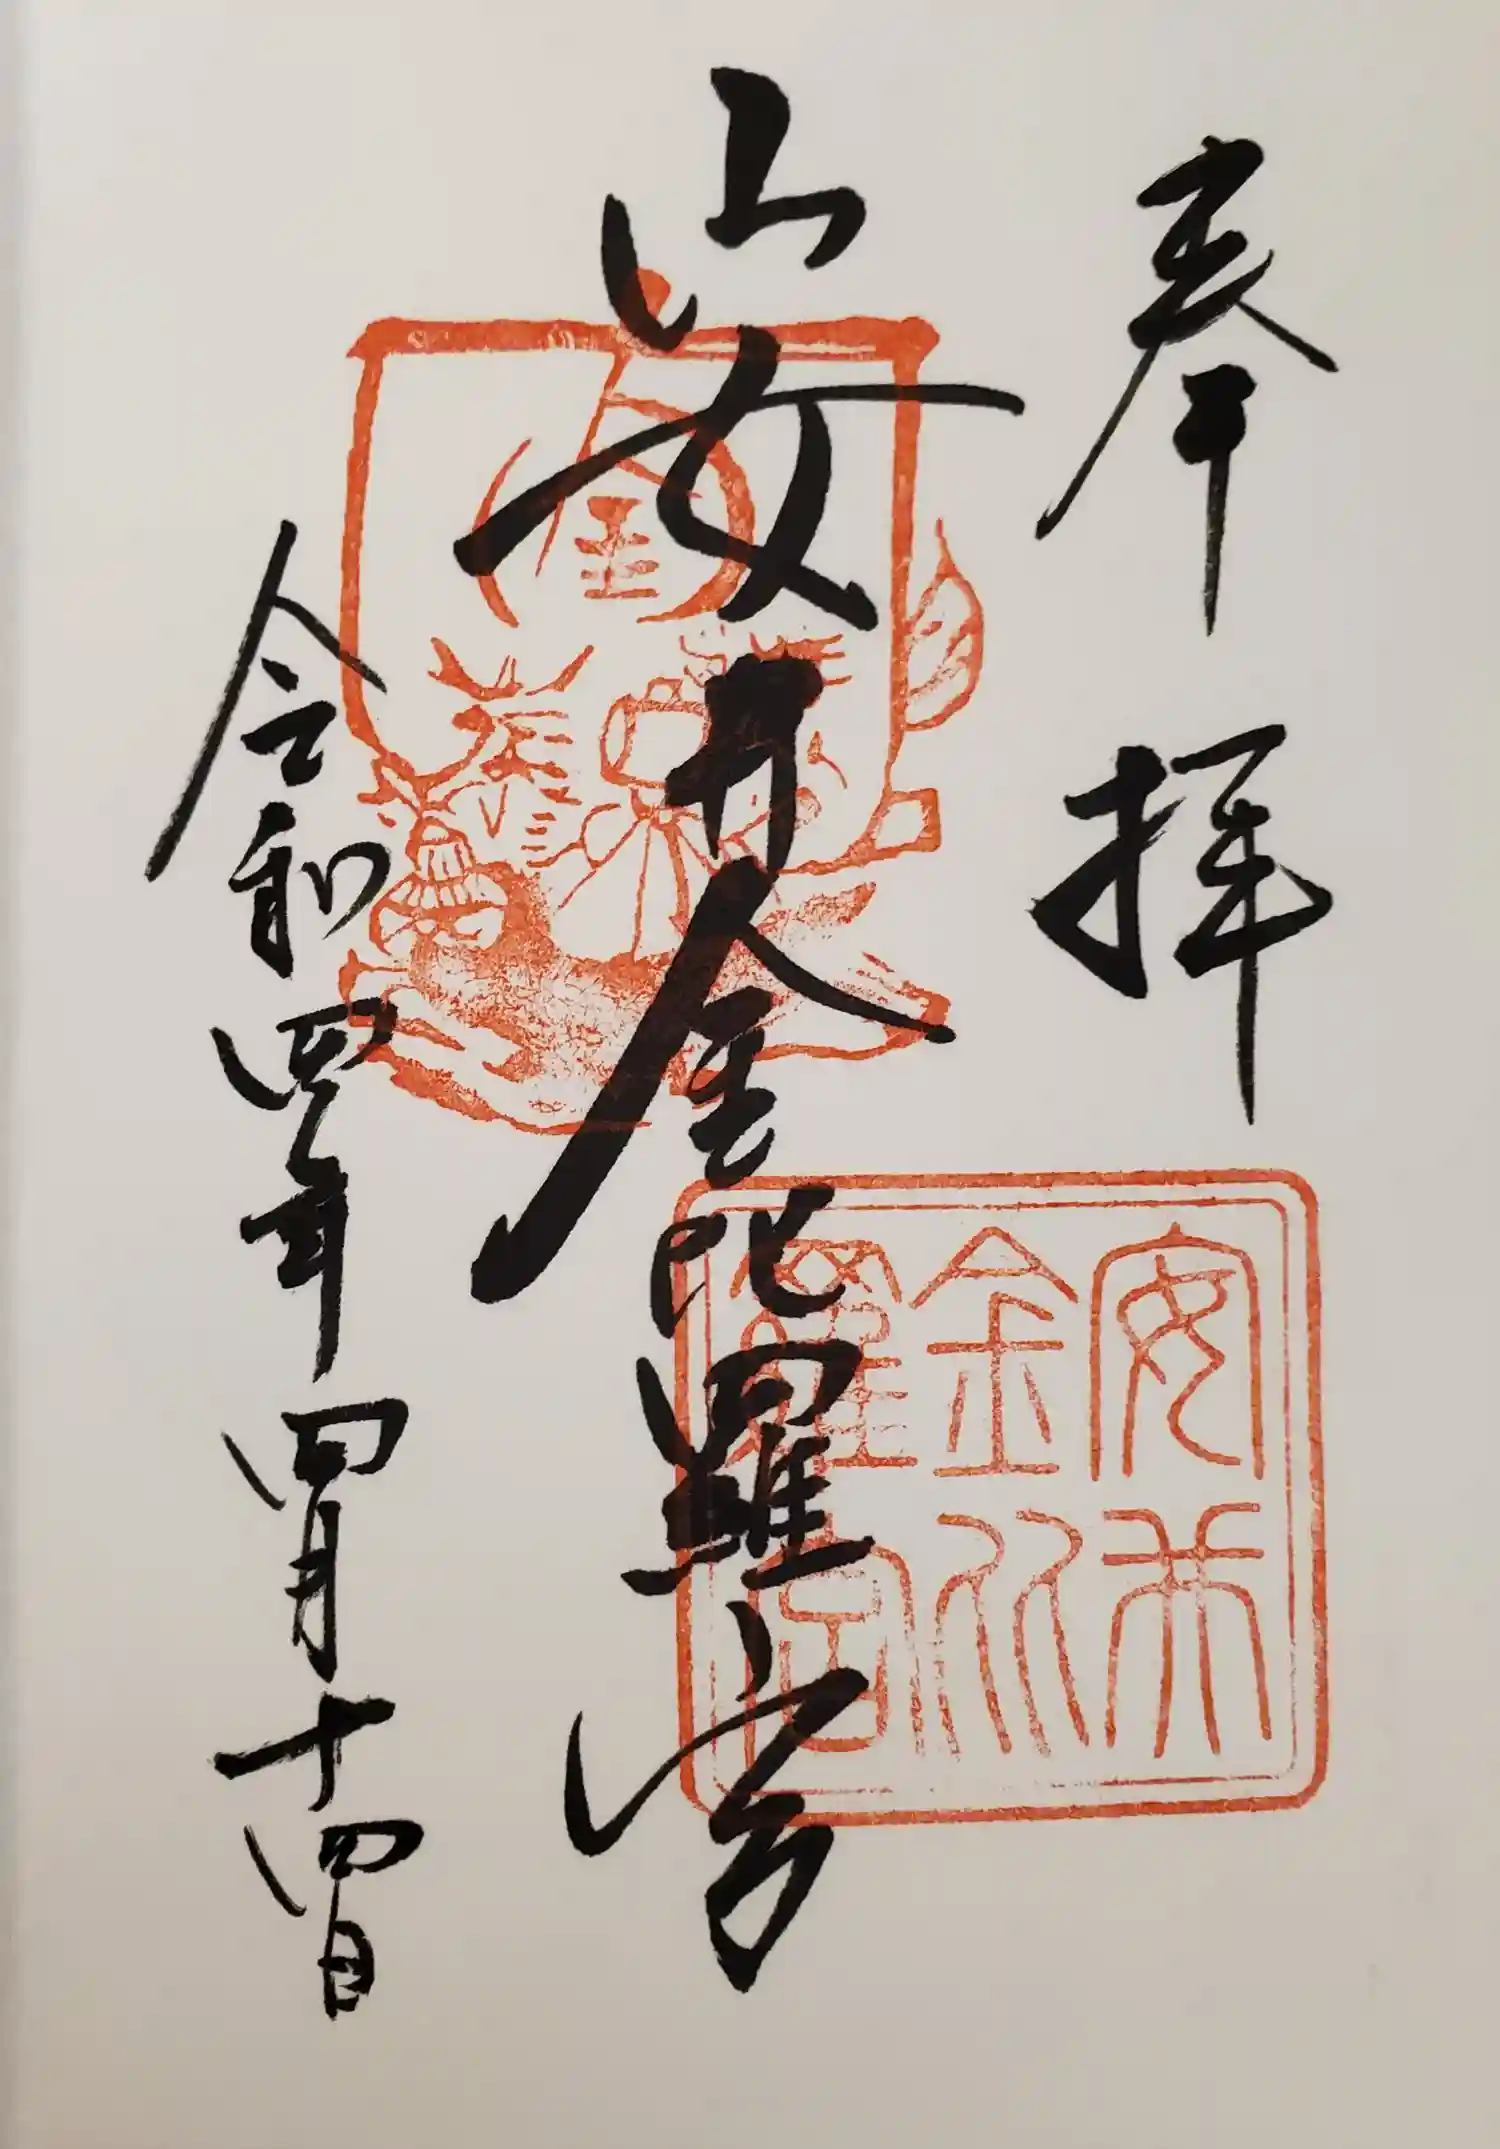 奉拝
安井金比羅宮
令和四年四月十四日
金
安井
金比
羅宮